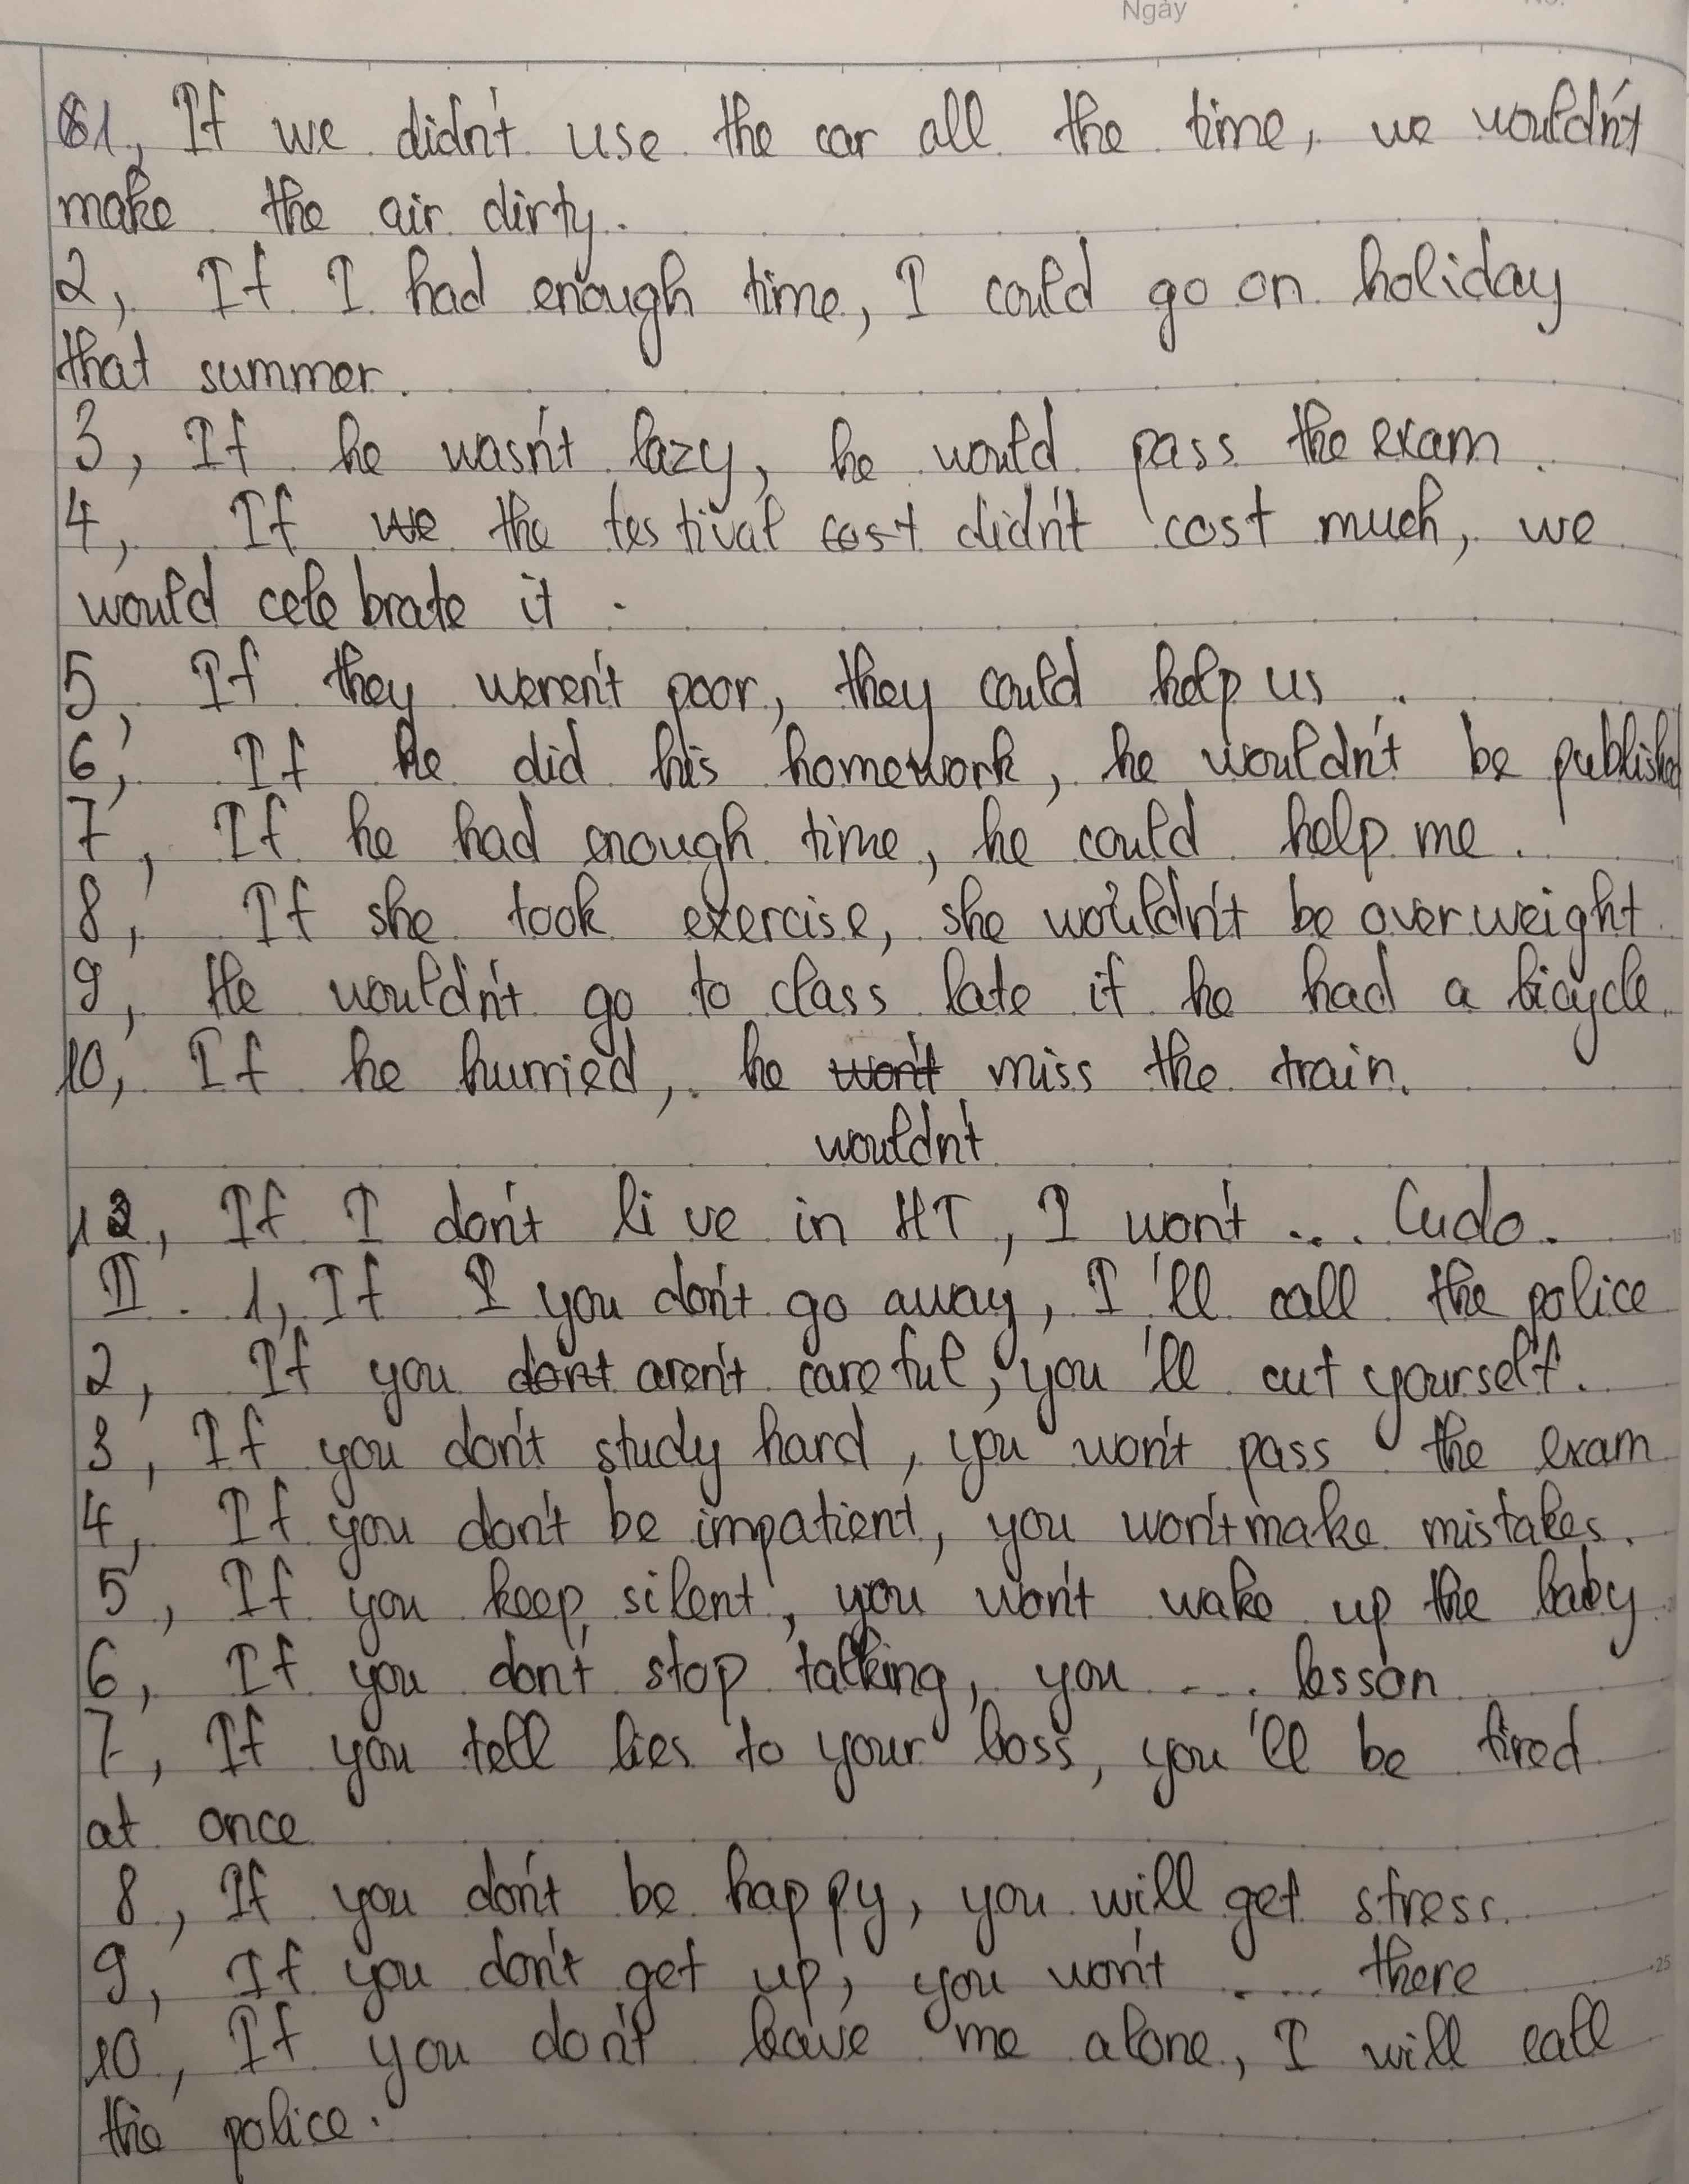 Ngày
1, If we didn't use the car all the time, we wouldn't
make the air dirty.
2, If I had enough time, I could go on holiday
that summer.
3, If he wasn't lazy, he would pass the exam.
4, If we the festival cost didn't cost much, we
would celebrate it.
5, If they weren't poor, they could help us.
6, If he did his homework, he wouldn't be published
7, If he had enough time, he could help me.
8, If she took exercise, she wouldn't be overweight.
9, He wouldn't go to class late if he had a bicycle.
10, If he hurried, he won't miss the train.
wouldn't
12, If I don't live in HT, I won't ... Cudo.
II. 1, If I you don't go away, I'll call the police
2, If you don't aren't careful, you'll cut yourself.
3, If you don't study hard, you won't pass the exam
4, If you don't be impatient, you won't make mistakes.
5, If you keep silent, you won't wake up the baby
6, If you don't stop talking, you .... lesson
7, If you tell lies to your boss, you'll be fired
at once
8, If you don't be happy, you will get stress.
9, If you don't get up, you won't .... there
25
10, If you don't leave me alone, I will call
the police.